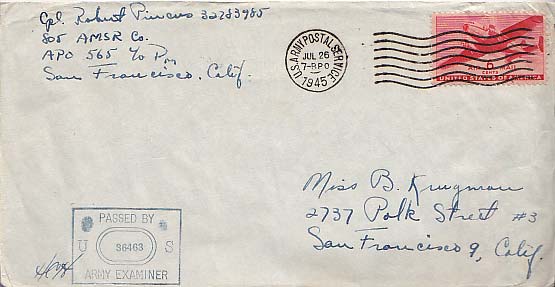 Cpl. Robert Pincus 32283985
805 AMSR Co.
APO 565 c/o Pm,
San Francisco, Calif.
U.S. ARMY POSTAL SERVICE
JUL 26
7-BPO
1945
AIR MAIL
6
CENTS
UNITED STATES OF AMERICA
Miss B. Krugman
2737 Polk Street #3
San Francisco 9, Calif.
PASSED BY
U 36463 S
ARMY EXAMINER